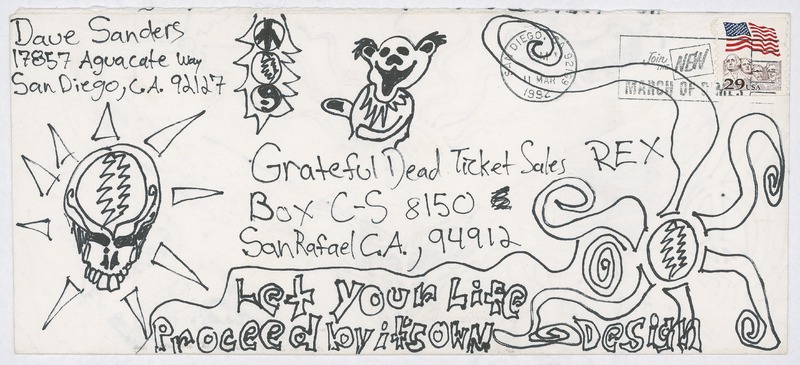 Dave Sanders
17857 Aguacate Way
San Diego, C.A. 92127
SAN DIEGO, CA
11 MAR
1992
Join
NEW
MARCH OF DIMES
29 USA
Grateful Dead Ticket Sales REX
Box C-S 8150
San Rafael C.A., 94912
Let your Life
Proceed by it's own Design